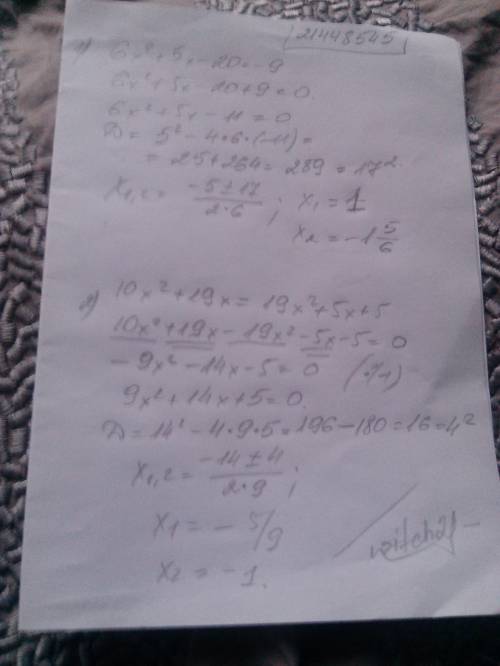 21448545
1) 6x²+5x-20=-9
6x²+5x-20+9=0.
6x²+5x-11=0
D=5²-4•6•(-11)=
=25+264=289=17².
x₁,₂=(-5±17)/(2•6); x₁=1
x₂=-1 5/6
2) 10x²+19x=19x²+5x+5
10x²+19x-19x²-5x-5=0
-9x²-14x-5=0
9x²+14x+5=0.
D=14²-4•9•5=196-180=16=4²
x₁,₂=(-14±4)/(2•9);
x₁=-5/9
x₂=-1.